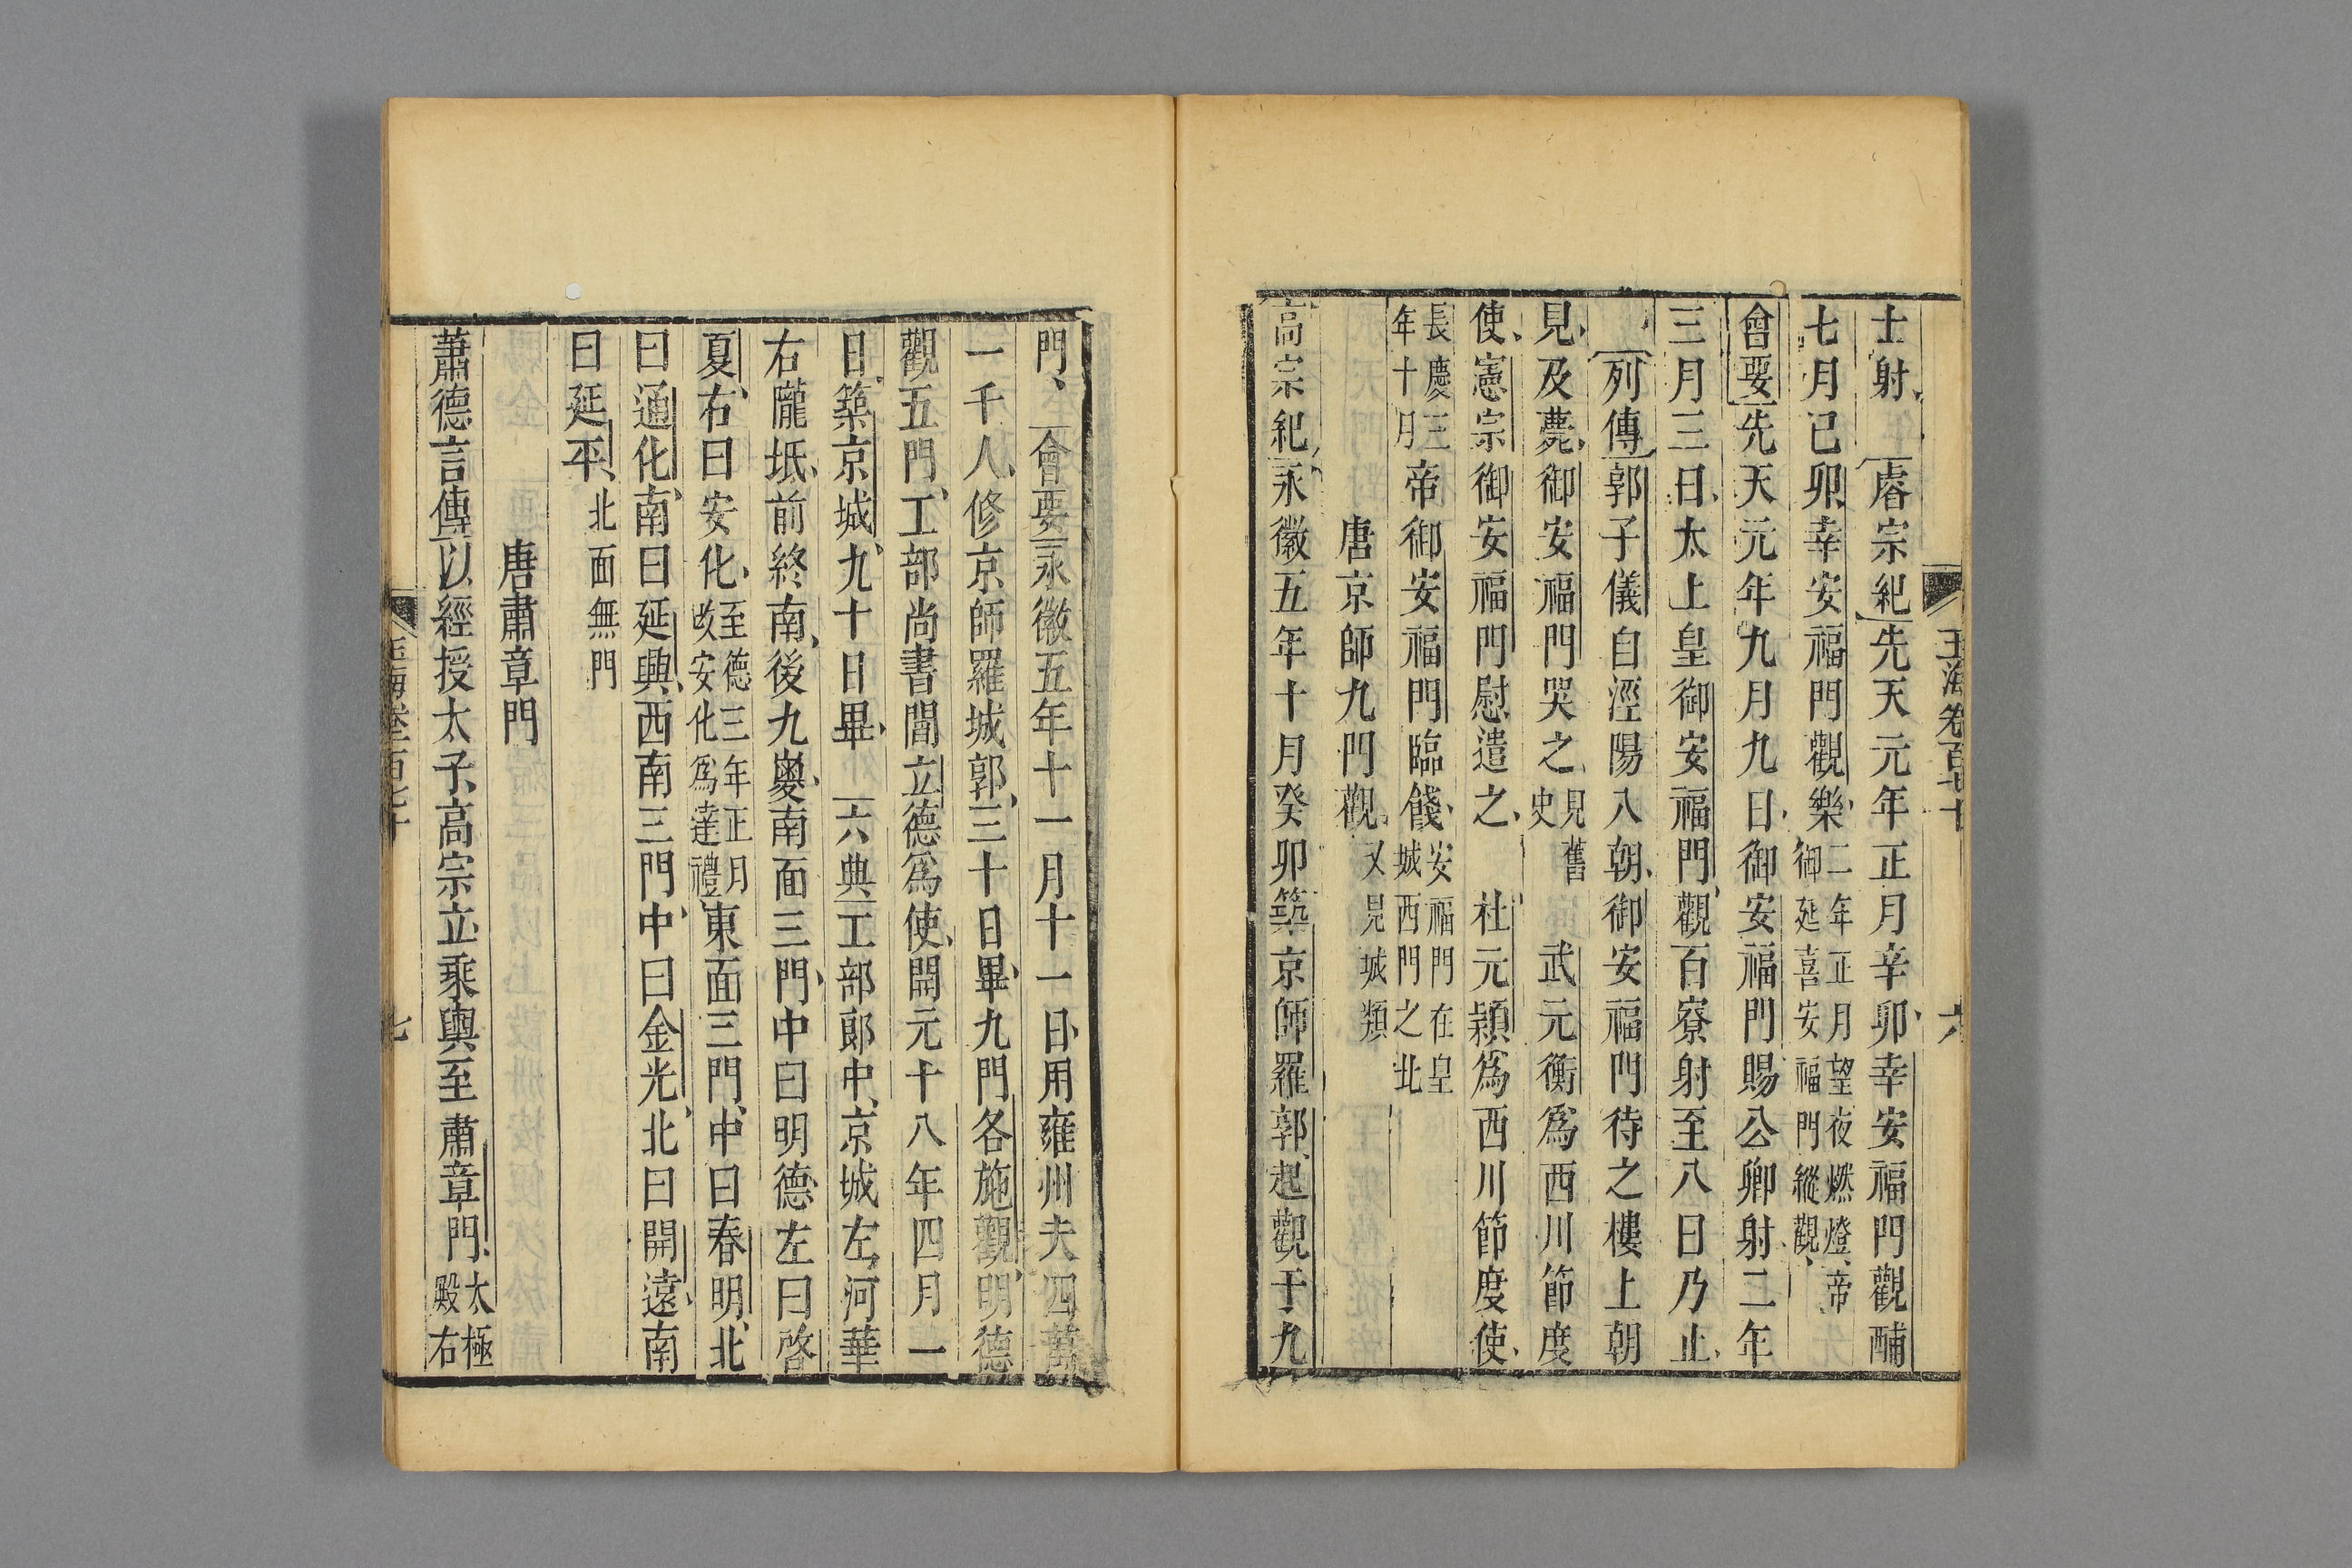 玉海卷百七十 六
士射 睿宗紀先天元年正月辛卯幸安福門觀酺
七月己卯幸安福門觀樂二年正月望夜燃燈帝御延喜安福門縱觀
會要先天元年九月九日御安福門賜公卿射二年
三月三日太上皇御安福門觀百寮射至八日乃止
列傳郭子儀自涇陽入朝御安福門待之樓上朝
見及薨御安福門哭之見舊史 武元衡為西川節度
使憲宗御安福門慰遣之 杜元頴為西川節度使
長慶三年十月帝御安福門臨餞安福門在皇城西門之北
唐京師九門觀又見城類
高宗紀永徽五年十月癸卯築京師羅郭起觀于九
門 會要永徽五年十一月十一日用雍州夫四萬
一千人修京師羅城郭三十日畢九門各施觀明德
觀五門工部尚書閻立德為使開元十八年四月一
日築京城九十日畢 六典工部郎中京城左河華
右隴坻前終南後九嵏南面三門中曰明德左曰啓
夏右曰安化至德三年正月改安化為達禮東面三門中曰春明北
曰通化南曰延興西南三門中曰金光北曰開遠南
曰延平北面無門
唐肅章門
蕭德言傳以經授太子高宗立乘輿至肅章門太極殿右
玉海卷百七十 七